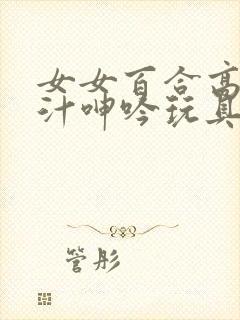 女女百合高
汁呻吟玩具
管彤